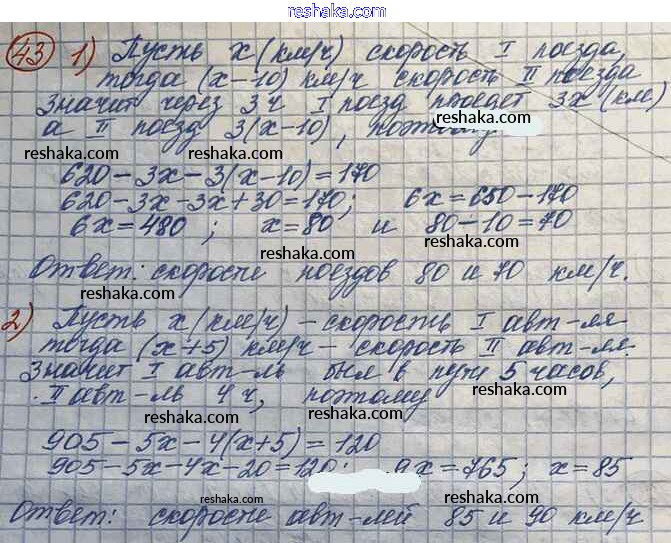 www.reshaka.com
43 1) Пусть x (км/ч) скорость I поезда,
тогда (x-10) км/ч скорость II поезда
Значит через 3ч I поезд проедет 3x (км)
а II поезд 3(x-10), поэтому
reshaka.com reshaka.com reshaka.com
620-3x-3(x-10)=170
620-3x-3x+30=170; 6x=650-170
reshaka.com reshaka.com
6x=480; x=80 и 80-10=70
reshaka.com
Ответ: скорости поездов 80 и 70 км/ч.
reshaka.com reshaka.com
2) Пусть x (км/ч) - скорость I авт-ля
тогда (x+5) км/ч - скорость II авт-ля.
reshaka.com
Значит I авт-ль был в пути 5 часов,
II авт-ль 4 ч, поэтому
reshaka.com reshaka.com
905-5x-4(x+5)=120
reshaka.com
905-5x-4x-20=120; 9x=765; x=85
reshaka.com reshaka.com
Ответ: скорости авт-лей 85 и 90 км/ч
reshaka.com